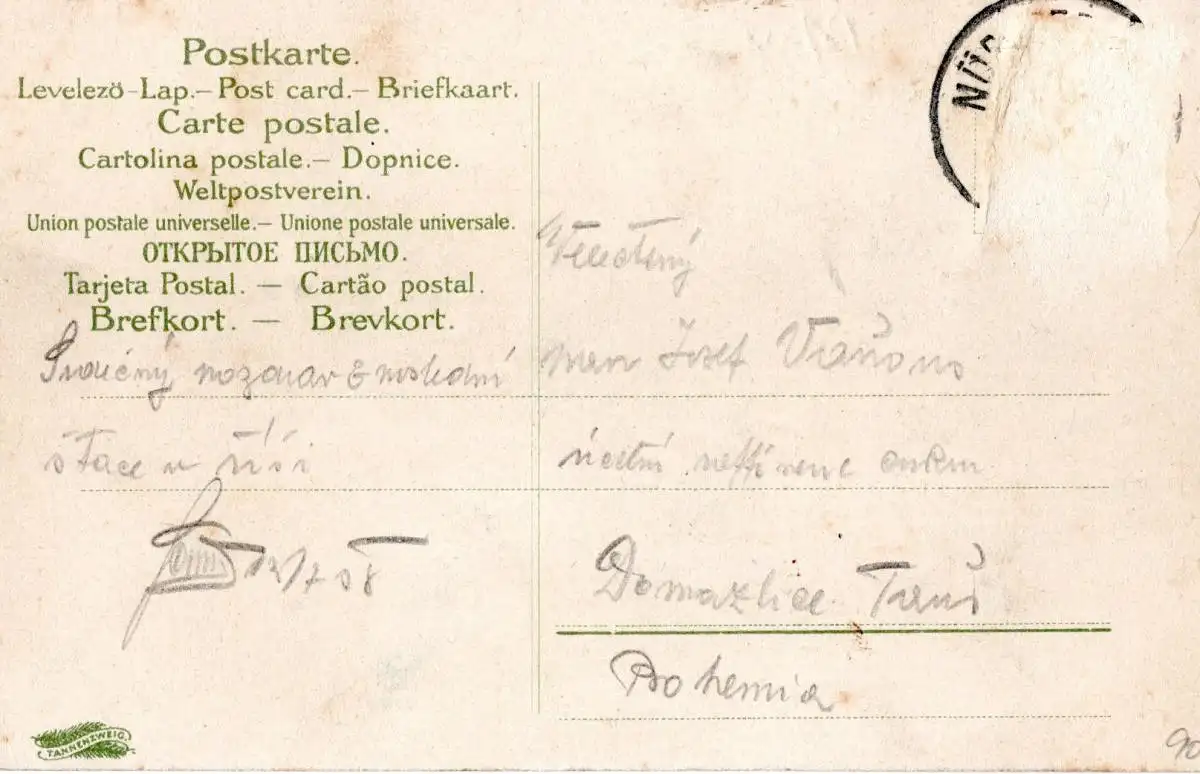 Postkarte.
Levelező-Lap.— Post card.— Briefkaart.
Carte postale.
Cartolina postale.— Dopnice.
Weltpostverein.
Union postale universelle.— Unione postale universale.
ОТКРЫТОЕ ПИСЬМО.
Tarjeta Postal. — Cartão postal.
Brefkort. — Brevkort.
Srdečný pozdrav z poslední
štace v říši
NÜ
Velectěný
pan Josef
účetní
Domažlice Taus
Bohemia
TANNENZWEIG
90